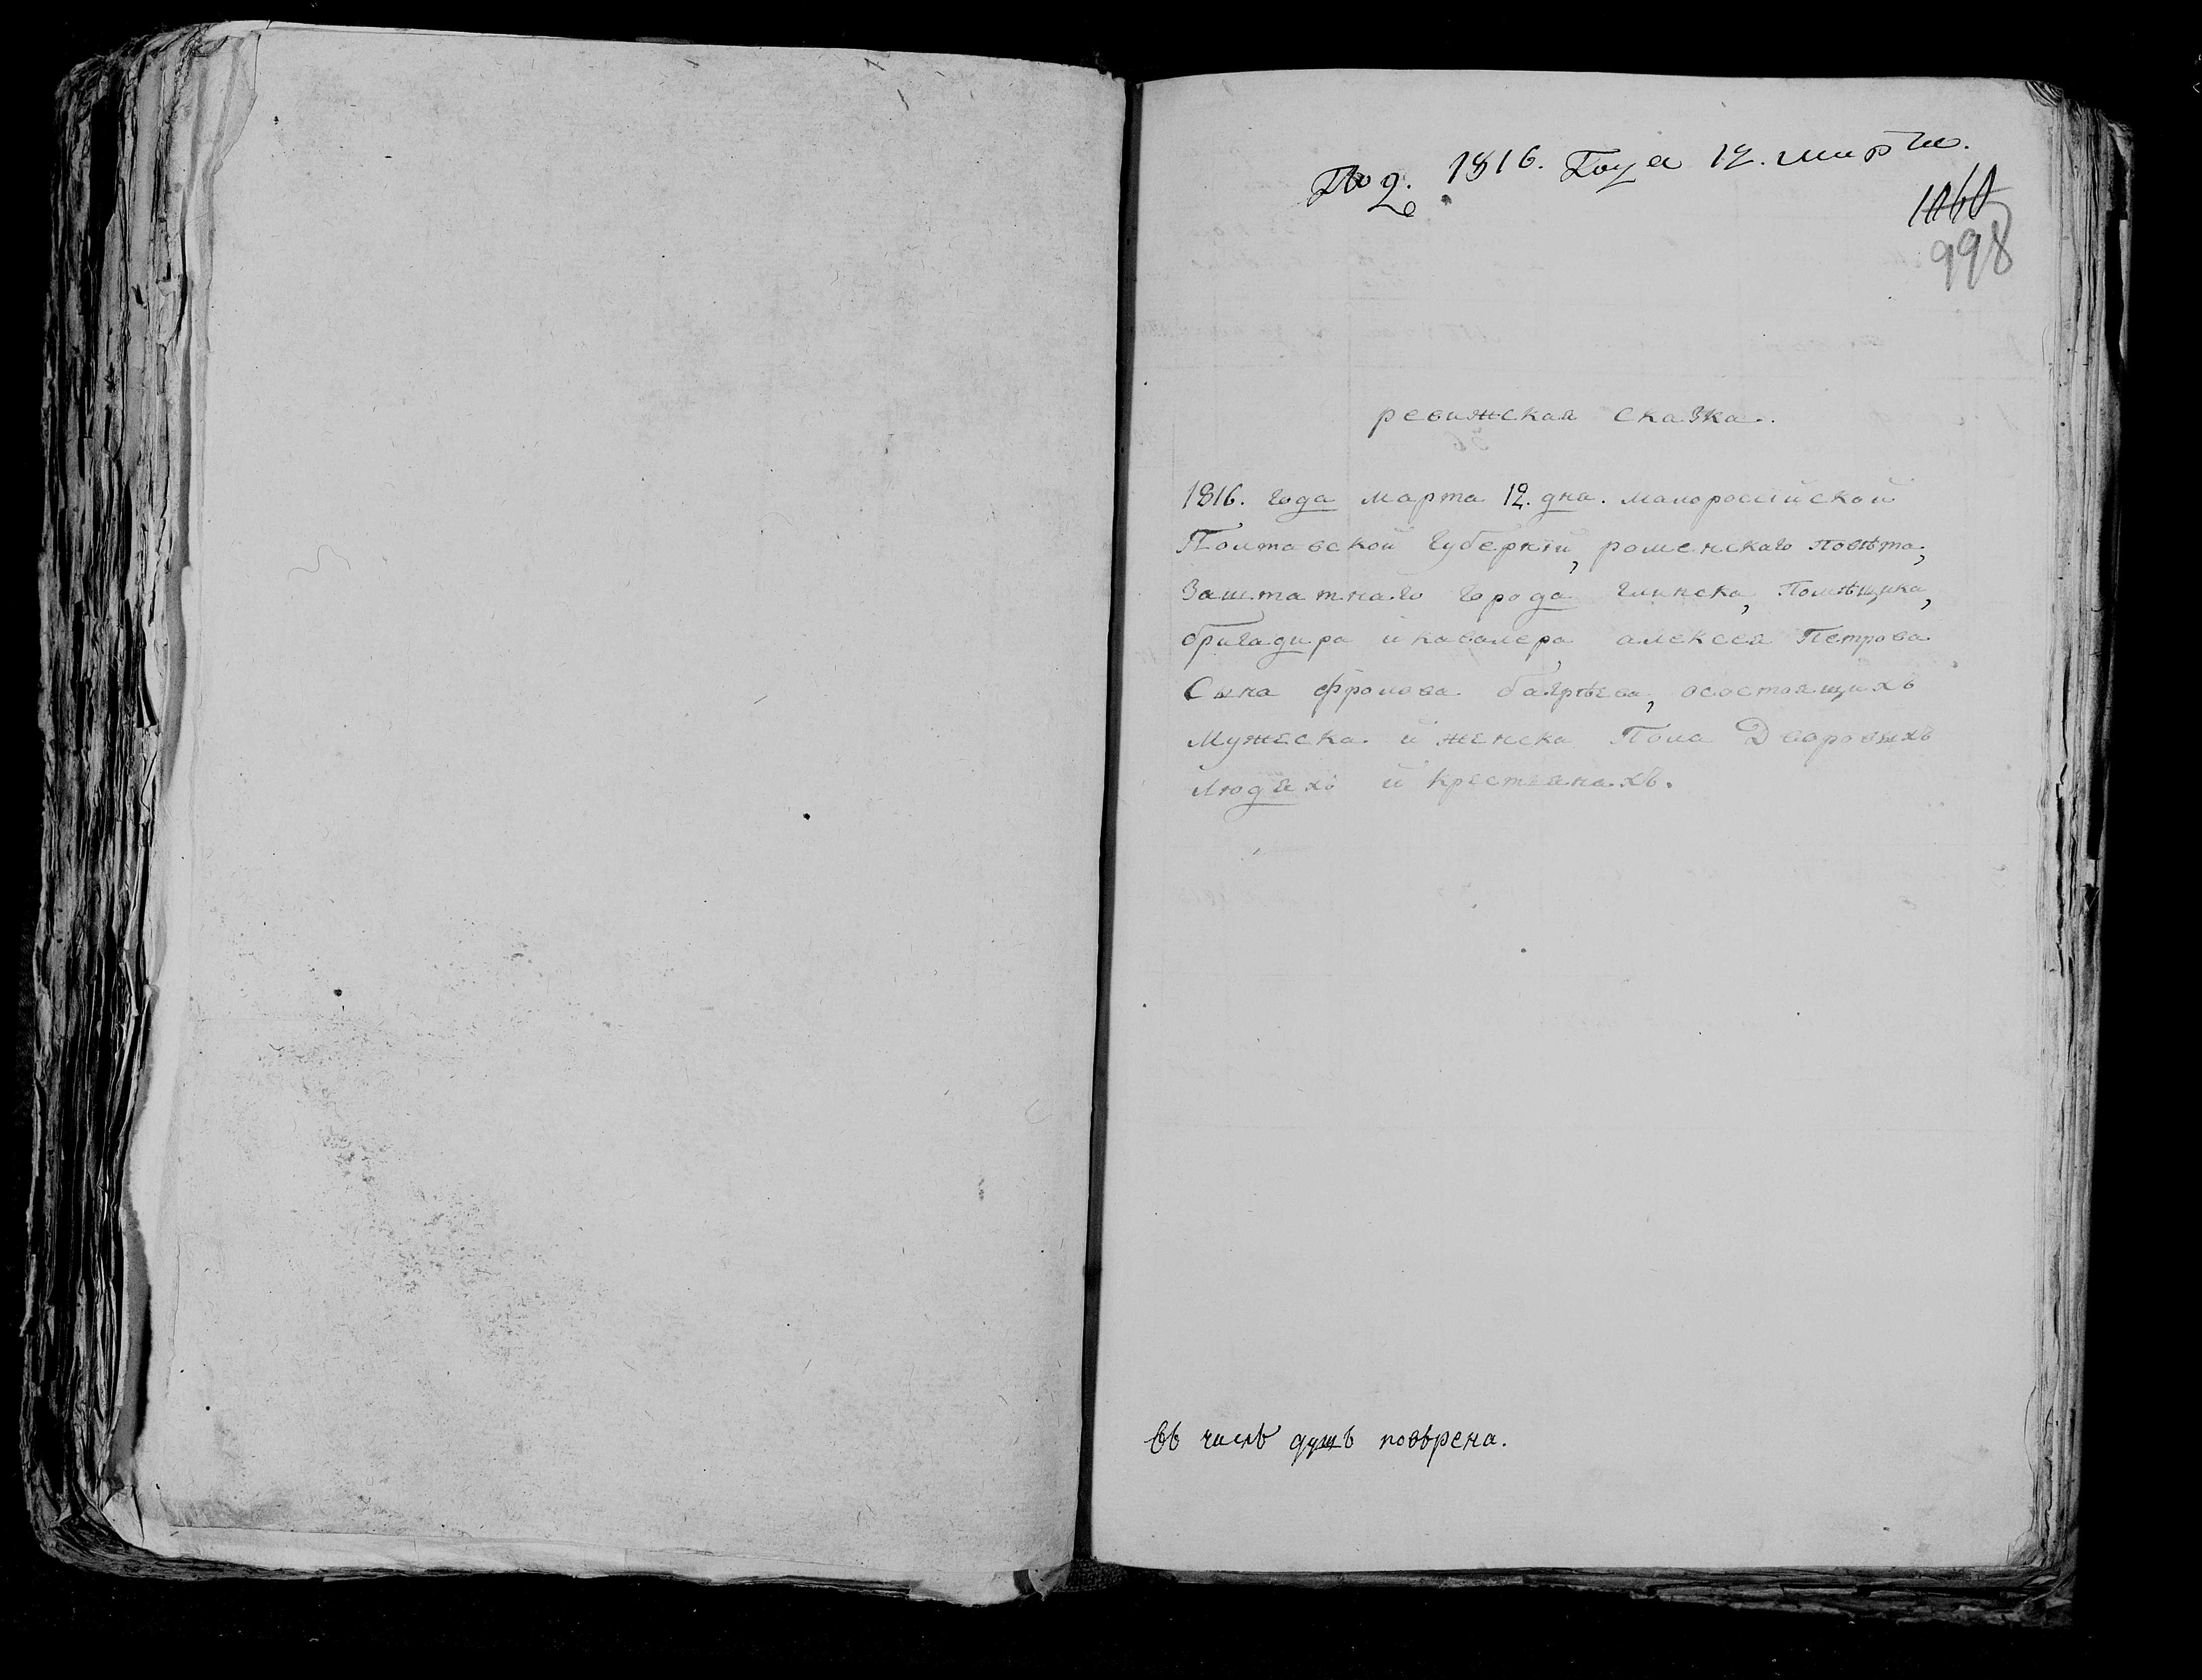 Под. 1816. Года 12. марта.
1060
998
ревижская сказка.
1816. года марта 12. дна. малороссійской
Полтавской губерніи, роменскаго повѣта,
Заштатнаго города глинска, Помѣщика,
бригадира и кавалера алексея Петрова
Сына фролова багрѣева, осостоящихъ
Мужеска и женска Пола Дворовыхъ
людяхъ и крестьянахъ.
въ числѣ душъ повѣрена.